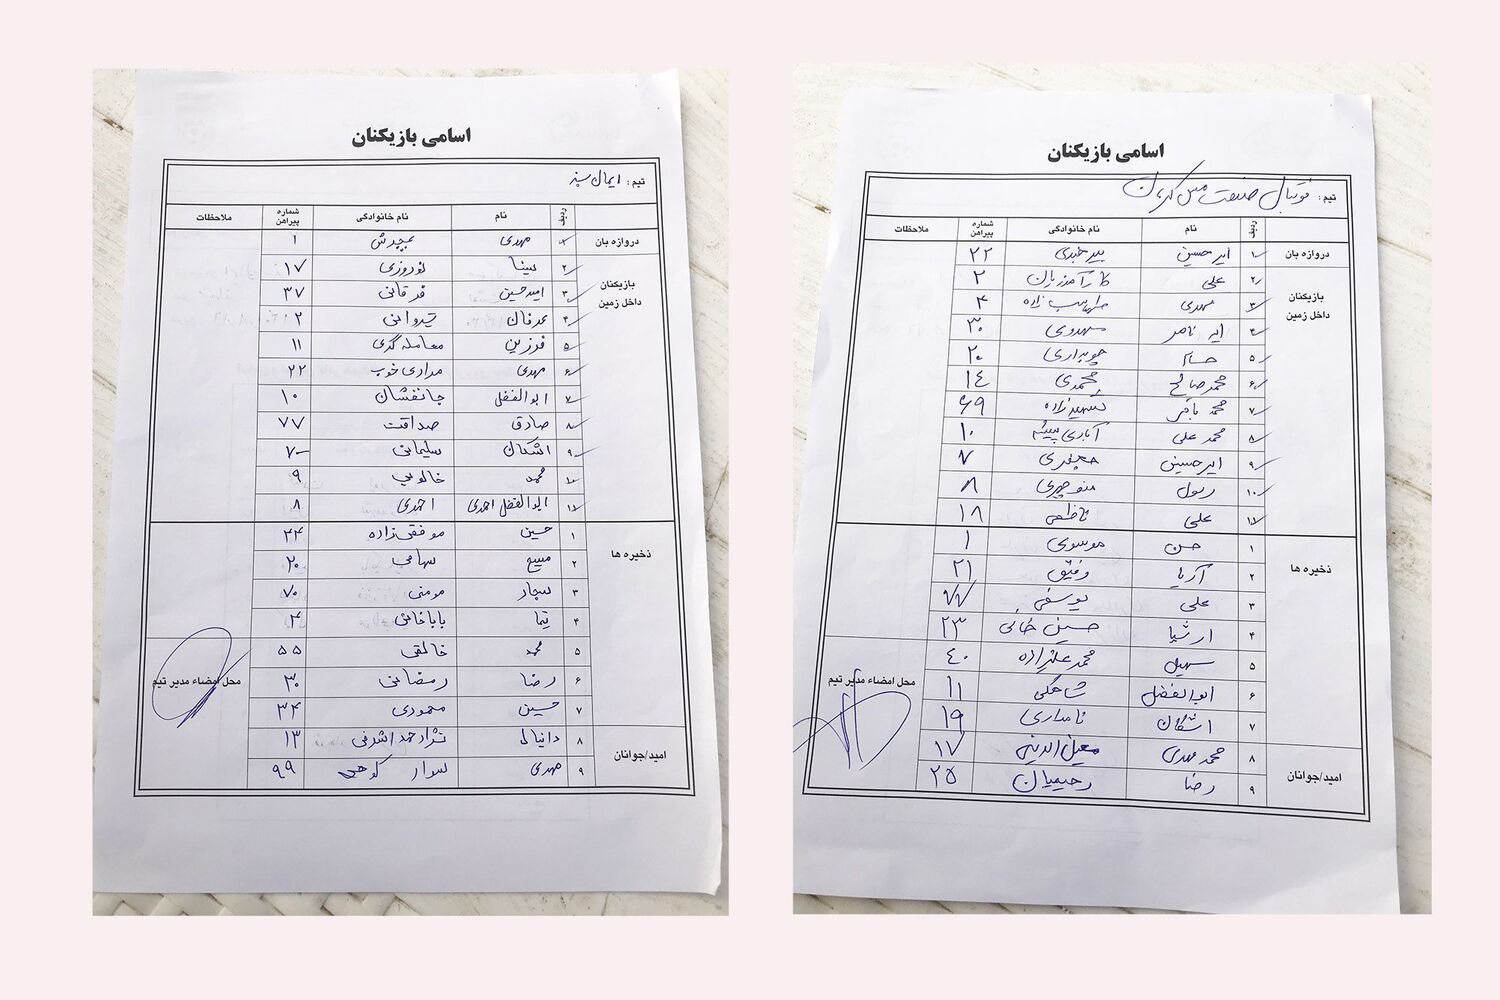 اسامی بازیکنان
تیم : ایمان سبز
ردیف نام نام خانوادگی شماره پیراهن ملاحظات
دروازه بان
۱ مهدی ۱
بازیکنان داخل زمین
۲ سینا نوروزی ۱۷
۳ امیدحسین فرقانی ۳۷
۴ عرفان ۲
۵ فرزین معامله گری ۱۱
۶ مهدی مرادی خوب ۲۲
۷ ابوالفضل جانفشان ۱۰
۸ صادق صداقت ۷۷
۹ اشکان سلیمانی ۷۰
۱۰ محمد خالویی ۹
۱۱ ابوالفضل احمدی احمدی ۸
ذخیره ها
۱ حسین موفقی زاده ۴۴
۲ مسیح سهامی ۲۰
۳ سجاد مومنی ۷۰
۴ باباخانی ۴
۵ محمد خالقی ۵۵
۶ رضا رمضانی ۳۰
۷ حسین محمودی ۳۴
امید/جوانان
۸ دانیال نژاد احمد اشرفی ۱۳
۹ مهدی سوار کوهی ۹۹
محل امضاء مدیر تیم
اسامی بازیکنان
تیم : فوتبال صنعت مس کرمان
ردیف نام نام خانوادگی شماره پیراهن ملاحظات
دروازه بان
۱ امیرحسین ۲۲
بازیکنان داخل زمین
۲ علی کارآموزیان ۲
۳ مهدی طهماسب زاده ۴
۴ امیر ناصر مهدوی ۳۰
۵ حسام چوبداری ۲۰
۶ محمد صالح محمدی ۱۴
۷ محمد باقر شهید زاده ۶۹
۸ محمد علی آبادی پیشه ۱۰
۹ امیرحسین جعفری ۷
۱۰ رسول منوچهری ۸
۱۱ علی کاظمی ۱۸
ذخیره ها
۱ حسن موسوی ۱
۲ آریا رفیق ۲۱
۳ علی یوسفی ۷۷
۴ ارشیا حسین خانی ۲۳
۵ سهیل محمد علیزاده ۴۰
۶ ابوالفضل شاهکی ۱۱
۷ اشکان نامداری ۱۹
امید/جوانان
۸ محمد مهدی معین الدینی ۱۷
۹ رضا رحیمیان ۲۵
محل امضاء مدیر تیم